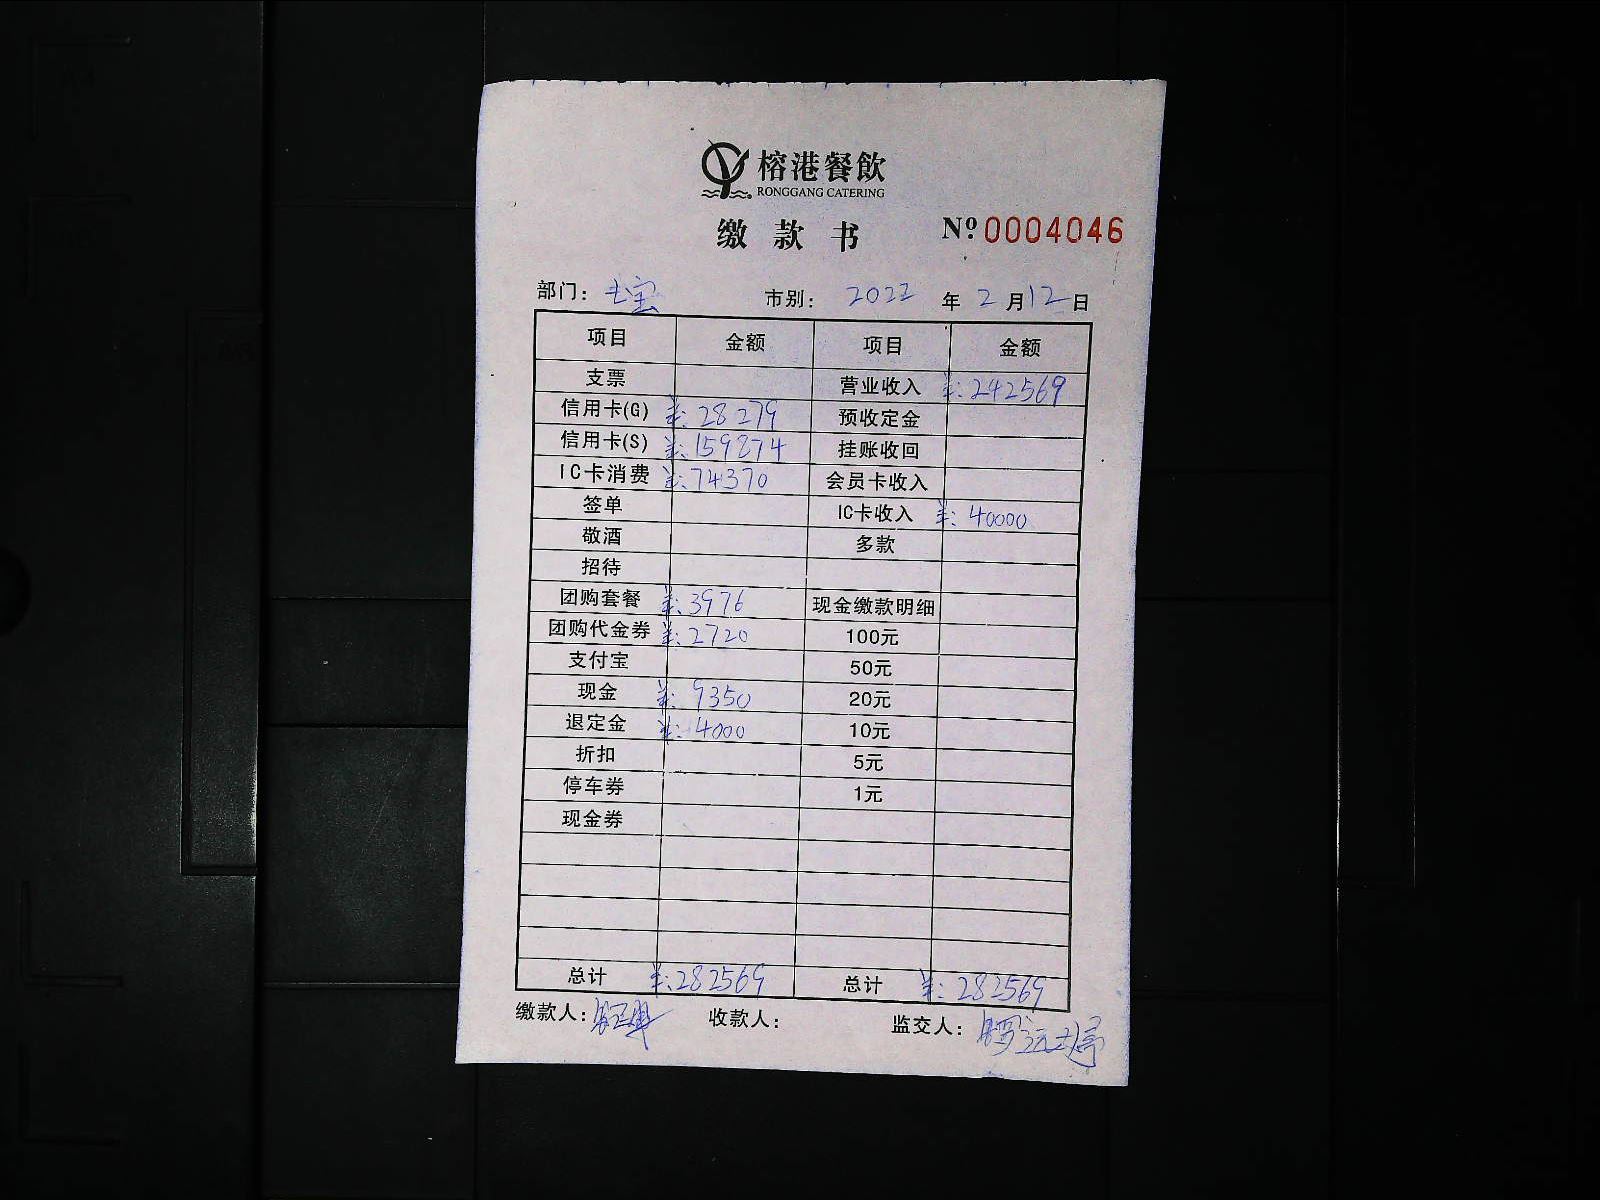 榕港餐飲
RONGGANG CATERING
缴款书 Nº 0004046
部门: 七宝 市别: 2022 年 2 月 12 日
项目 金额 项目 金额
支票 营业收入 ¥:242569
信用卡(G) ¥:28279 预收定金
信用卡(S) ¥:159874 挂账收回
IC卡消费 ¥:74370 会员卡收入
签单 IC卡收入 ¥:40000
敬酒 多款
招待
团购套餐 ¥:3976 现金缴款明细
团购代金券 ¥:2720 100元
支付宝 50元
现金 ¥:9350 20元
退定金 ¥:4000 10元
折扣 5元
停车券 1元
现金券
总计 ¥:282569 总计 ¥:282569
缴款人: 收款人: 监交人: